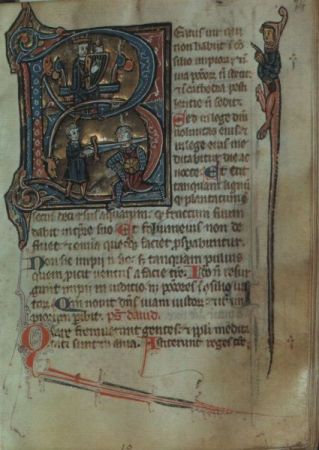 Beatus uir qui
non habiit i cō
silio impiorū et i
uia pccorū n stetit
et i cathedra pesti
lentie n sedit
Sed in lege dñi
uoluntas eius et
in lege eius me
ditabitur die ac
nocte. Et erit
tanquam lignū
qd plantatum ē
secus decursus aquarum: qd fructum suum
dabit in tpre suo Et folium eius non de
fluet et omnia quecūqȝ faciet pspabuntur.
Non sic impii n sic sed tanquam puluis
quem picit uentus a facie tre. Ideo n resur
gunt impii in iudicio n pccores i cōsilio ius
tor. Qm nouit dns uiam iustor et it im
piorum pibit. ps dauid.
Quare fremuerunt gentes et ppli medita
ti sunt inania. Astiterunt reges tre